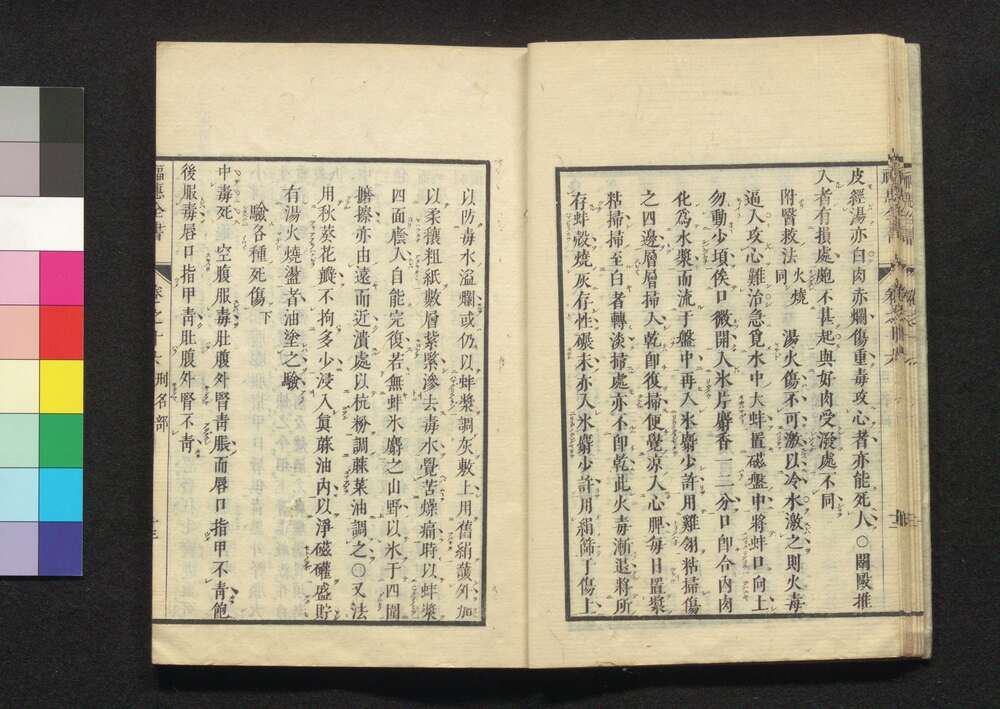 皮經湯亦白肉赤爛傷重毒攻心者亦能死人○鬭毆推
入者有損處皰不甚起與好肉受潑處不同
附醫救法 火燒同 湯火傷不可激以冷水激之則火毒
逼人攻心難治急覓水中大蚌置磁盤中將蚌口向上
勿動少頃俟口微開入氷片麝香一二分口卽合內肉
化為水漿而流于盤中再入氷麝少許用雞翎粘掃傷
之四邊層層掃入乾卽復掃便覺凉入心脾每日置漿
粘掃掃至白者轉淡掃處亦不卽乾此火毒漸退將所
存蚌殻燒灰存性碾末亦入氷麝少許用絹篩于傷上
以防毒水溢爛或仍以蚌漿調灰敷上用舊絹護外加
以柔穰粗紙數層紮緊滲去毒水覺苦燥痛時以蚌漿
四面麿入自能完復若無蚌氷麝之山野以氷于四圍
擦亦由遠而近潰處以杭粉調蔴菜油調之○又法
用秋葵花瓣不拘多少浸入眞蔴油內以淨磁確盛貯
有湯火燒盪者油塗之驗
驗各種死傷下
中毒死 空腹服毒肚腹外腎靑脹而唇口指甲不靑飽
後服毒唇口指甲靑肚腹外腎不靑
福惠全書 卷之十六 刑名部 十三